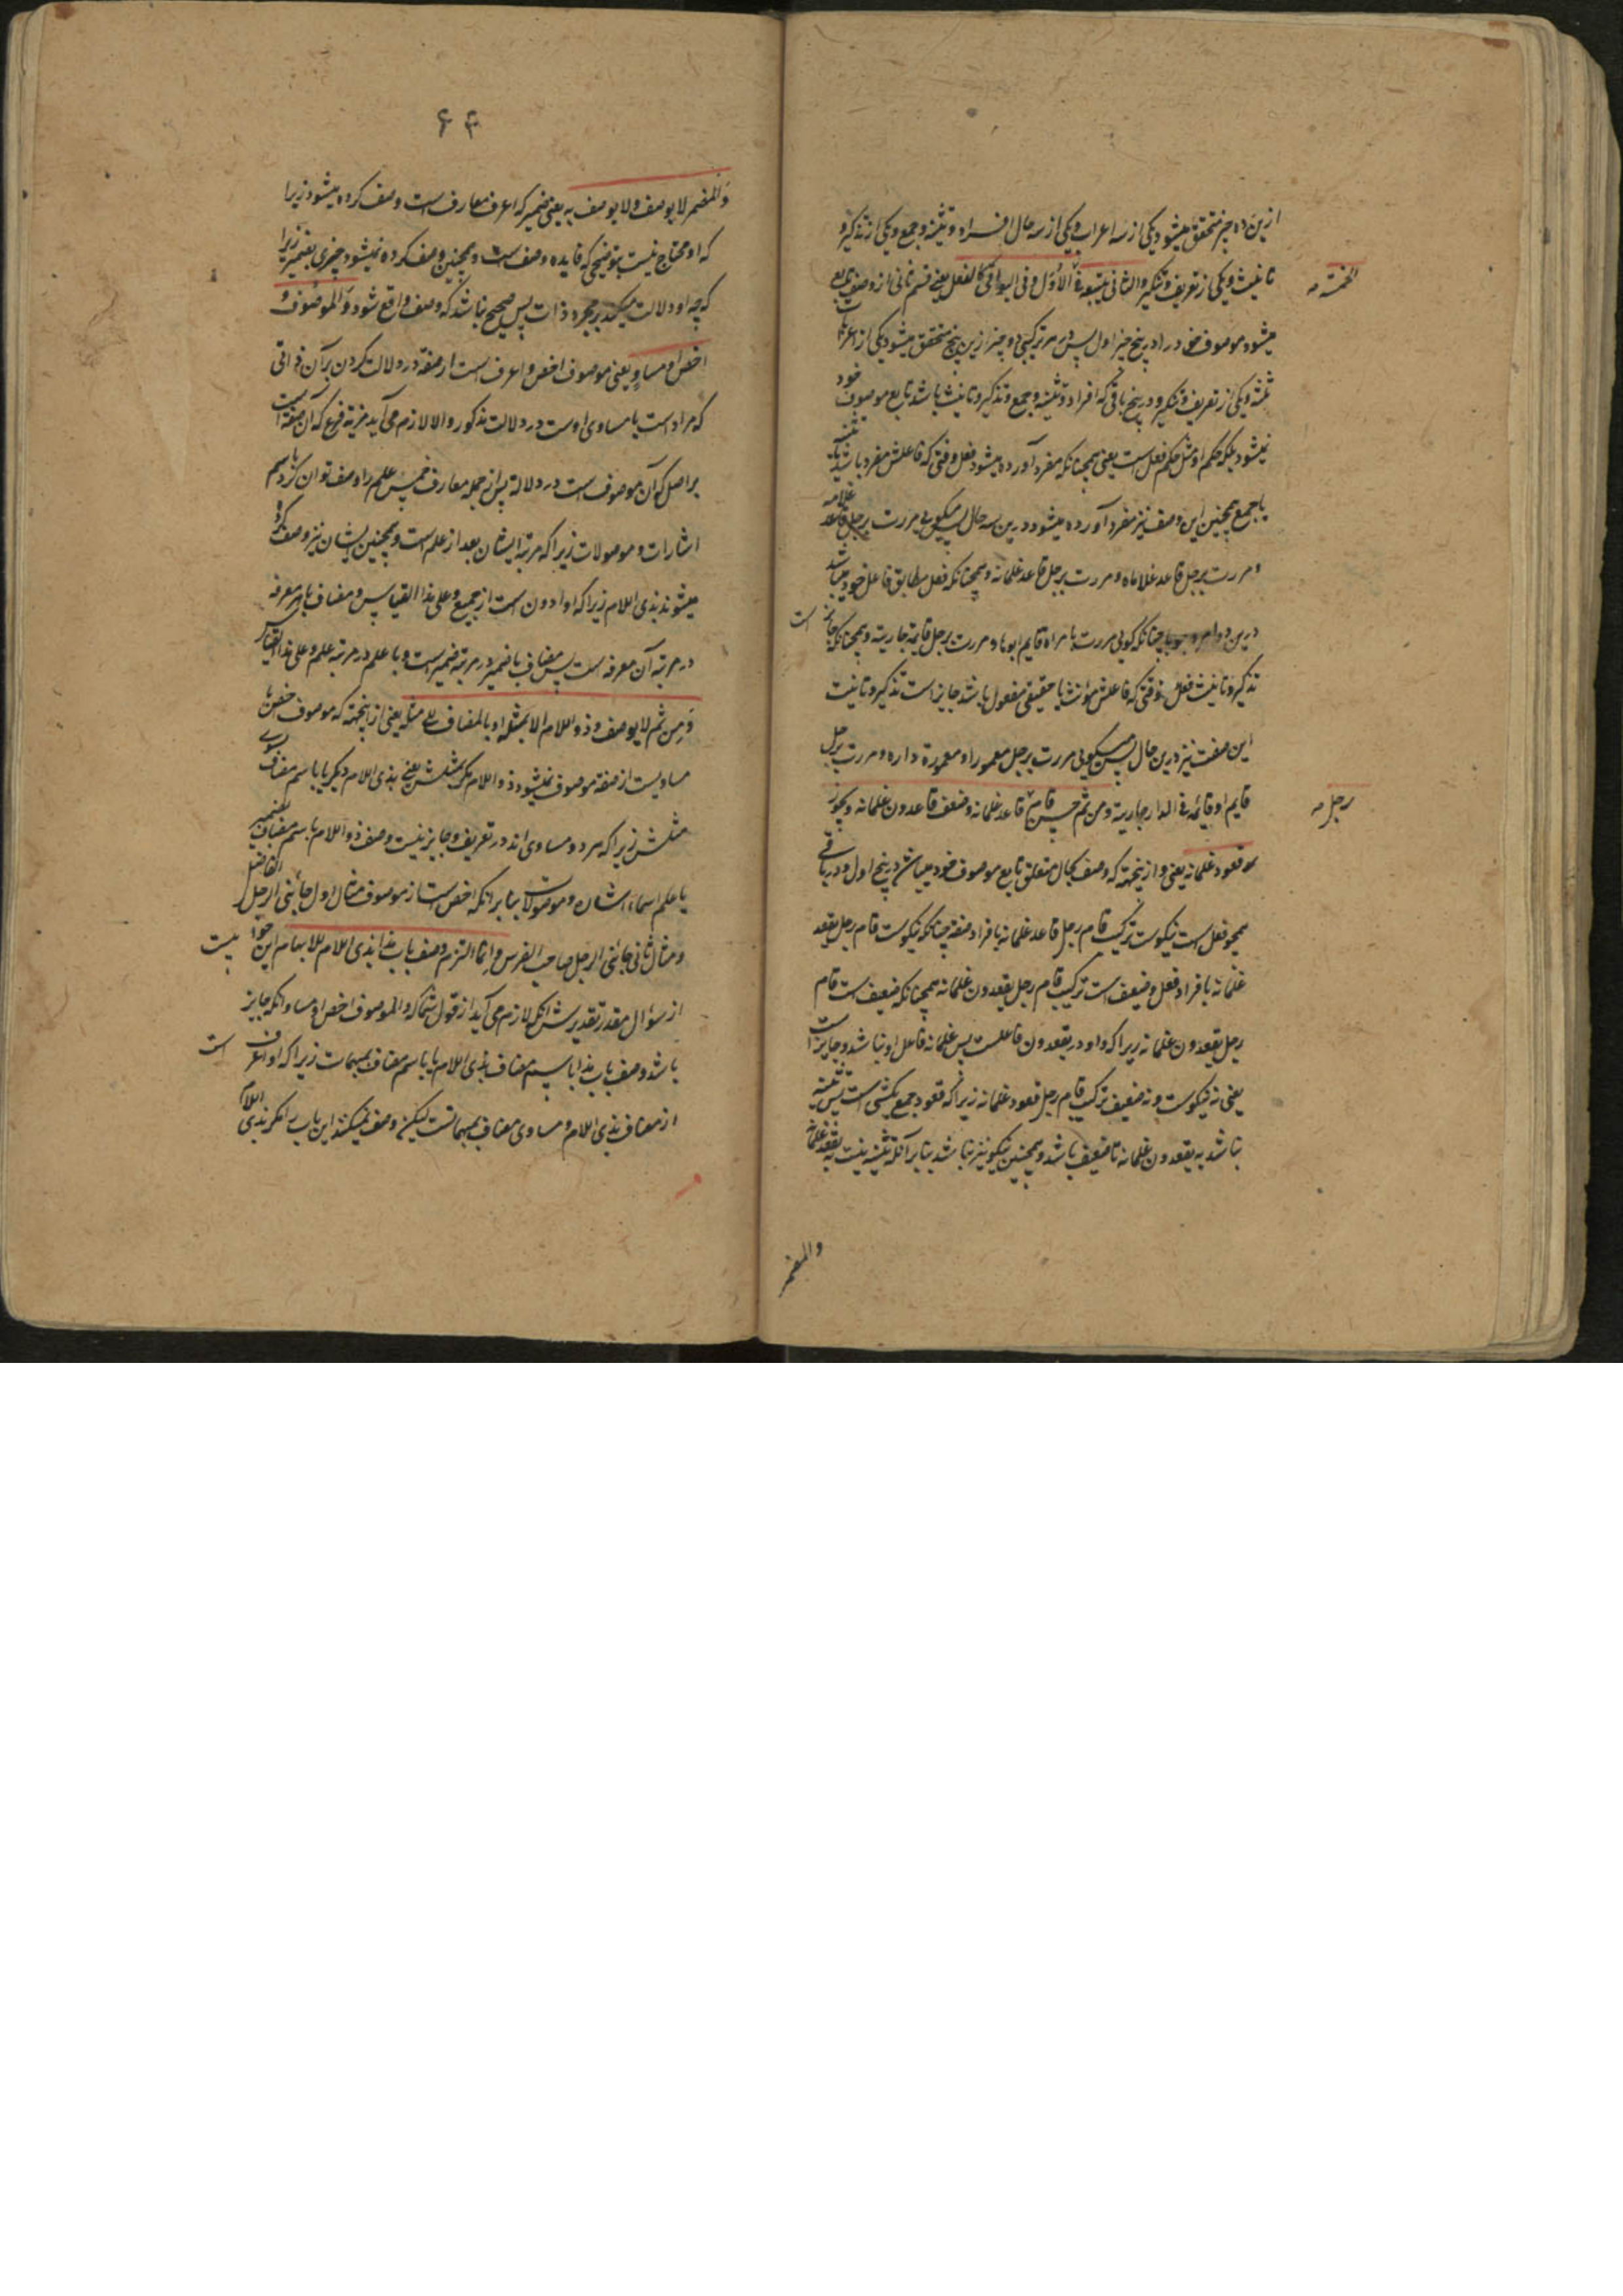 ازین ده چیز متحقق میشود یکی از سه اعراب و یکی از سه حال افراد و تثنیه و جمع و یکی از تذکیر و
تانیث و یکی از تعریف و تنکیر والثانی یتبعه فی الاول وفی البواقی کالفعل یعنی قسم ثانی از وصف تابع
الخمسة
میشود موصوف خود را در پنج چیز اول پس در هر ترکیبی دو چیز ازین پنج متحقق میشود یکی از اعراب
ثلثه و یکی از تعریف و تنکیر و در پنج باقی که افراد و تثنیه و جمع و تذکیر و تانیث باشد تابع موصوف خود
نمیشود بلکه حکم او مثل حکم فعل است یعنی همچنانکه مفرد آورده میشود فعل وقتی که فاعلش مفرد باشد یا تثنیه
یا جمع همچنین این وصف نیز مفرد آورده میشود درین سه حال پس میگویی مررت برجل قاعد غلامه
و مررت برجل قاعد غلاماه و مررت برجل قاعد غلمانه و همچنانکه فعل مطابق فاعل خود میباشد
درین دو امر وجوبا چنانکه گویی مررت بامراة قایم ابوها و مررت برجل قایمة جاریته و همچنانکه جائز است
تذکیر و تانیث فعل وقتی که فاعلش مؤنث یا حقیقی مفعول باشد جایز است تذکیر و تانیث
این صفت نیز درین حال پس میگویی مررت برجل معمور او معمورة داره و مررت برجل
قایم او قائمه فی الدار جاریته ومن ثم حسن قام قاعد غلمانه وضعف قاعدون غلمانه ویجوز
رجل
قعود غلمانه یعنی و از ینجهته که وصف بحال متعلق تابع موصوف خود میباشد در پنج اول و در باقی
همچو فعل است نیکوست ترکیب قام رجل قاعد غلمانه بافراد صفة چنانکه نیکوست قام رجل یقعد
غلمانه بافراد فعل و ضعیف است ترکیب قام رجل یقعدون غلمانه همچنانکه ضعیف است قام
رجل یقعدون غلمانه زیرا که واو در یقعدون فاعلست پس غلمانه فاعل او نباشد و جایز است
یعنی نه نیکوست و نه ضعیف ترکیب قام رجل قعود غلمانه زیرا که قعود جمع مکسر است پس شبیه
نباشد به یقعدون غلمانه تا ضعیف باشد و همچنین نیکو نیز نباشد بنا بر آنکه شبیه نیست به یقعد غلمانه
والمضمر
۶۴
والمضمر لا یوصف ولا یوصف به یعنی ضمیر که اعرف معارف است وصف کرده نمیشود زیرا
که او محتاج نیست بتوضیحی که فایده وصف است و همچنین وصف کرده نمیشود چیزی بضمیر زیرا
که چه او دلالت میکند بر مجرد ذات پس صحیح نباشد که وصف واقع شود والموصوف
اخص او مساو یعنی موصوف اخص و اعرف است از صفة در دلالت کردن بر آن ذاتی
که مراد است یا مساوی اوست در دلالت مذکور والا لازم می آید مزیة فرع که آن صفة است
بر اصل که آن موصوف است در دلالة پس از جمله معارف پس علم را وصف توان کرد باسم
اشارات و موصولات زیرا که مرتبه ایشان بعد از علم است و همچنین ایشان نیز وصف کرده
میشوند بذی اللام زیرا که او ادون است از جمیع وعلی هذا القیاس و مضاف باهر معرفه
در مرتبه آن معرفه است پس مضاف باضمیر در مرتبه ضمیر است و با علم در مرتبه علم وعلی هذا القیاس
ومن ثم لا یوصف ذو اللام الا بمثله او بالمضاف الی مثله یعنی از اینجهته که موصوف اخص یا
مساویست از صفة موصوف نمیشود ذو اللام مگر بمثلش یعنی بذی اللام دیگر یا باسم مضاف بسوی
مثلش زیرا که هر دو مساوی اند در تعریف و جایز نیست وصف ذو اللام باسم مضاف بضمیر
یا علم اسماء اشارات و موصولات بنا بر آنکه اخص است از موصوف مثال اول جائنی الرجل الفاضل
و مثال ثانی جائنی الرجل صاحب الفرس وانما التزم وصف باب هذا بذی اللام للابهام این جوابیست
از سؤال مقدر تقدیرش آنکه لازم می آید از قول شما که والموصوف اخص او مساو آنکه جایز
باشد وصف باب هذا باسم مضاف بذی اللام یا باسم مضاف بمبهمات زیرا که او اعرف است
از مضاف بذی اللام و مساوی مضاف بمبهمانست لیکن وصف نمیکنند این باب را مگر بذی اللام